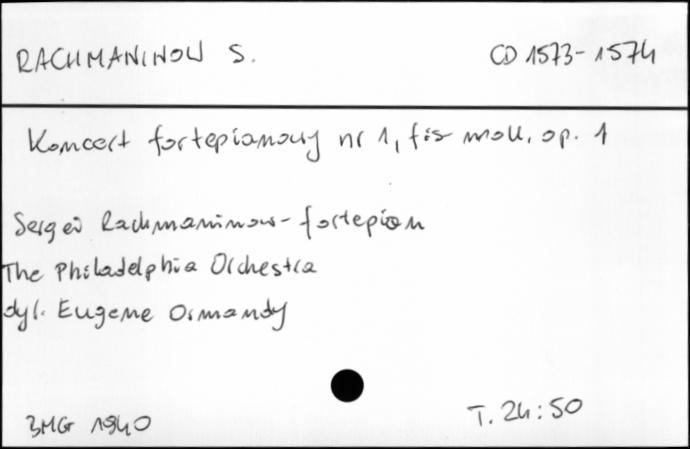 RACHMANINOW S. CD 1573-1574
Koncert fortepianowy nr 1, fis moll, op. 1
Sergei Rachmaninow - fortepian
The Philadelphia Orchestra
dyr. Eugene Ormandy
BMG 1940 T. 24:50